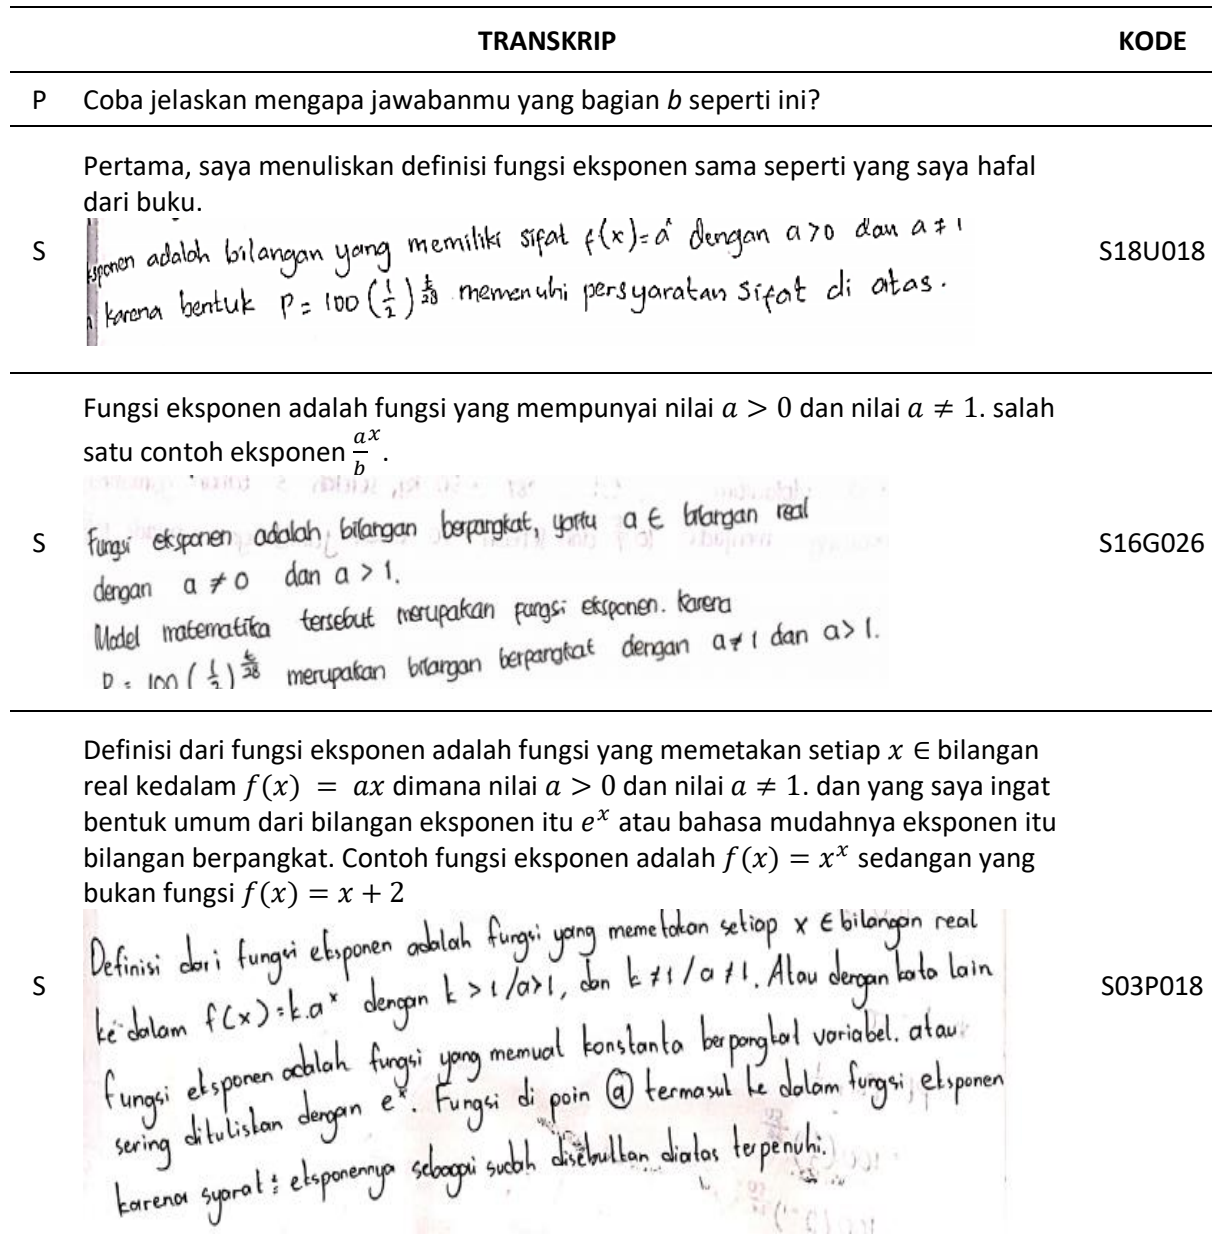 TRANSKRIP KODE
P Coba jelaskan mengapa jawabanmu yang bagian b seperti ini?
Pertama, saya menuliskan definisi fungsi eksponen sama seperti yang saya hafal
dari buku.
S S18U018
adalah bilangan yang memiliki sifat f(x)=aˣ dengan a>0 dan a≠1
karena bentuk P = 100 (1/2)^(t/28) memenuhi persyaratan sifat di atas.
Fungsi eksponen adalah fungsi yang mempunyai nilai a > 0 dan nilai a ≠ 1. salah
satu contoh eksponen aˣ/b .
S S16G026
Fungsi eksponen adalah bilangan berpangkat, yaitu a ∈ bilangan real
dengan a ≠ 0 dan a > 1.
Model matematika tersebut merupakan fungsi eksponen. karena
P = 100 (1/2)^(t/28) merupakan bilangan berpangkat dengan a≠1 dan a>1.
Definisi dari fungsi eksponen adalah fungsi yang memetakan setiap x ∈ bilangan
real kedalam f(x) = ax dimana nilai a > 0 dan nilai a ≠ 1. dan yang saya ingat
bentuk umum dari bilangan eksponen itu eˣ atau bahasa mudahnya eksponen itu
bilangan berpangkat. Contoh fungsi eksponen adalah f(x) = xˣ sedangan yang
bukan fungsi f(x) = x + 2
S S03P018
Definisi dari fungsi eksponen adalah fungsi yang memetakan setiap x ∈ bilangan real
ke dalam f(x)=k.aˣ dengan k>1/a>1, dan k≠1/a≠1. Atau dengan kata lain
fungsi eksponen adalah fungsi yang memuat konstanta berpangkat variabel. atau
sering dituliskan dengan eˣ. Fungsi di poin ⓐ termasuk ke dalam fungsi eksponen
karena syarat² eksponennya sebagai sudah disebutkan diatas terpenuhi.